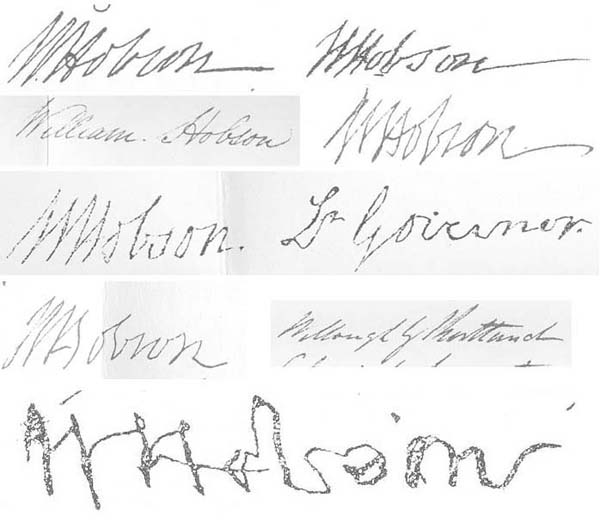 WHobson WHobson
William. Hobson WHobson
WHobson. Lt Governor.
WHobson Willough by Shortland
WHobson